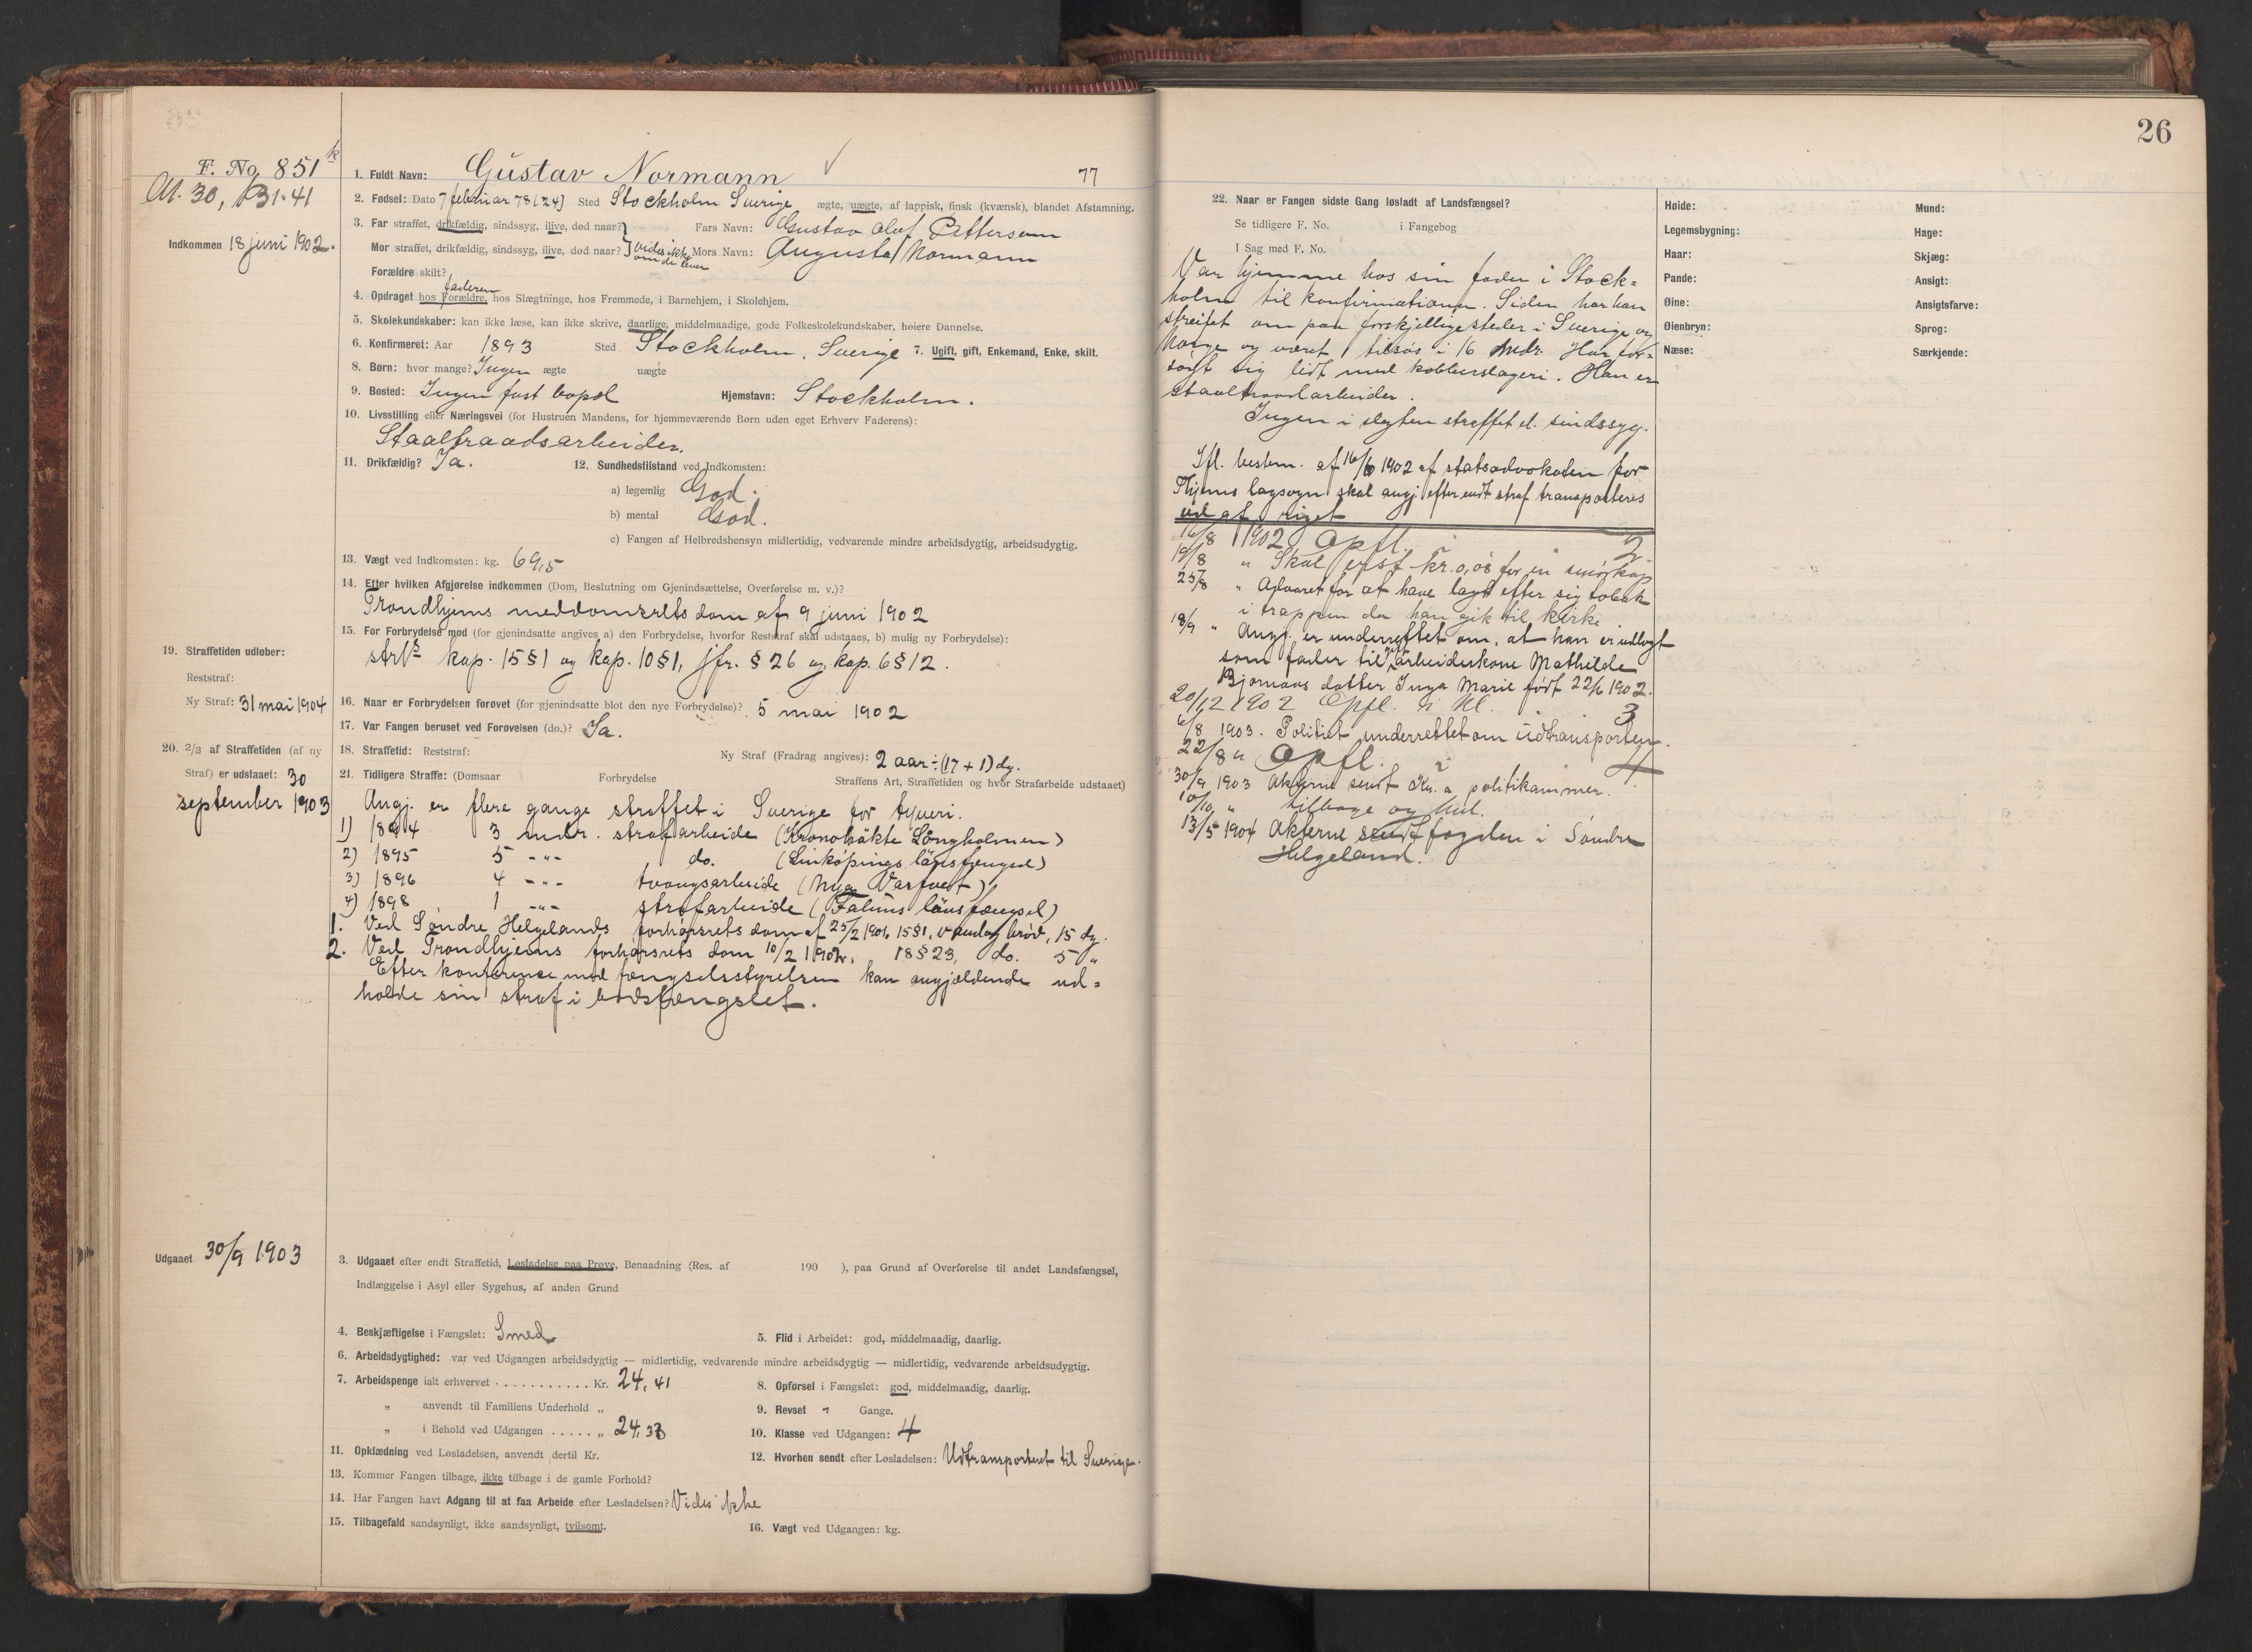 F. No. 851 k
At. 30, B31-41
Indkommen 18 juni 1902.
1. Fuldt Navn: Gustav Normann
77
2. Fødsel: Dato 7 februar 78 (24) Sted Stockholm Sverige ægte, uægte, af lappisk, finsk (kvænsk), blandet Afstamning.
3. Far straffet, drikfældig, sindssyg, ilive, død naar? Fars Navn: Gustav Olof Petterson
Mor straffet, drikfældig, sindssyg, ilive, død naar? vides ikke om de lever Mors Navn: Augusta Normann
Forældre skilt?
faderen
4. Opdraget hos Forældre, hos Slægtninge, hos Fremmede, i Barnehjem, i Skolehjem.
5. Skolekundskaber: kan ikke læse, kan ikke skrive, daarlige, middelmaadige, gode Folkeskolekundskaber, høiere Dannelse.
6. Konfirmeret: Aar 1893 Sted Stockholm, Sverige 7. Ugift, gift, Enkemand, Enke, skilt.
8. Børn: hvor mange? Ingen ægte uægte
9. Bosted: Ingen fast bopæl Hjemstavn: Stockholm.
10. Livsstilling eller Næringsvei (for Hustruen Mandens, for hjemmeværende Børn uden eget Erhverv Faderens):
Staaltraadsarbeider.
11. Drikfældig? Ja. 12. Sundhedstilstand ved Indkomsten:
a) legemlig God.
b) mental God.
c) Fangen af Helbredshensyn midlertidig, vedvarende mindre arbeidsdygtig, arbeidsudygtig.
13. Vægt ved Indkomsten: kg. 69,5
14. Efter hvilken Afgjørelse indkommen (Dom, Beslutning om Gjenindsættelse, Overførelse m. v.)?
Trondhjems meddomsrets dom af 9 juni 1902
15. For Forbrydelse mod (for gjenindsatte angives a) den Forbrydelse, hvorfor Reststraf skal udstaaes, b) mulig ny Forbrydelse):
strfs kap. 15 § 1 og kap. 10 § 1, jfr. § 26 og kap. 6 § 12.
19. Straffetiden udløber:
Reststraf:
Ny Straf: 31 mai 1904
16. Naar er Forbrydelsen forøvet (for gjenindsatte blot den nye Forbrydelse)? 5 mai 1902
17. Var Fangen beruset ved Forøvelsen (do.)? Ja.
20. 2/3 af Straffetiden (af ny
Straf) er udstaaet: 30
september 1903
18. Straffetid: Reststraf: Ny Straf (Fradrag angives): 2 aar ÷ (17 + 1) dg.
21. Tidligere Straffe: (Domsaar Forbrydelse Straffens Art, Straffetiden og hvor Strafarbeide udstaaet)
Angj. er flere gange straffet i Sverige for tyveri.
1) 1894 3 mdr. strafarbeide (Kronohäkte Långholmen)
2) 1895 5 -"- do. (Linköpings länsfængsel)
3) 1896 4 -"- tvangsarbeide (Nya Varfvet)
4) 1898 1 -"- strafarbeide (Faluns länsfængsel)
1. Ved Søndre Helgelands forhørsrets dom af 25/2 1901, 15 § 1, vand og brød, 15 dg.
2. Ved Trondhjems forhørsrets dom 10/2 1902, 18 § 23, do. 5 "
Efter konference med fængselsstyrelsen kan angjældende ud=
holde sin straf i bodsfængslet.
Udgaaet 30/9 1903
3. Udgaaet efter endt Straffetid, Løsladelse paa Prøve, Benaadning (Res. af 190 ), paa Grund af Overførelse til andet Landsfængsel,
Indlæggelse i Asyl eller Sygehus, af anden Grund
4. Beskjæftigelse i Fængslet: Smed 5. Flid i Arbeidet: god, middelmaadig, daarlig.
6. Arbeidsdygtighed: var ved Udgangen arbeidsdygtig — midlertidig, vedvarende mindre arbeidsdygtig — midlertidig, vedvarende arbeidsudygtig.
7. Arbeidspenge ialt erhvervet . . . . . . . . . . . Kr. 24,41 8. Opførsel i Fængslet: god, middelmaadig, daarlig.
„ anvendt til Familiens Underhold „ 9. Revset " Gange.
„ i Behold ved Udgangen . . . . . „ 24,33 10. Klasse ved Udgangen: 4
11. Opklædning ved Løsladelsen, anvendt dertil Kr. 12. Hvorhen sendt efter Løsladelsen: Udtransporteret til Sverige.
13. Kommer Fangen tilbage, ikke tilbage i de gamle Forhold?
14. Har Fangen havt Adgang til at faa Arbeide efter Løsladelsen? Vides ikke
15. Tilbagefald sandsynligt, ikke sandsynligt, tvilsomt. 16. Vægt ved Udgangen: kg.
26
22. Naar er Fangen sidste Gang løsladt af Landsfængsel?
Se tidligere F. No. i Fangebog
I Sag med F. No.
Var hjemme hos sin fader i Stock=
holm til konfirmationen. Siden har han
streifet om paa forskjellige steder i Sverige og
Norge og været tilsøs i 16 mdr. Har for=
søgt sig lidt med kobberslageri. Han er
staaltraadarbeider.
Ingen i slegten straffet el. sindssyg.
Ifl. bestem. af 16/6 1902 af statsadvokaten for
Thjems lagsogn skal angj. efter endt straf transporteres
ud af riget
16/8 1902 Opfl. 2
19/8 " Skal erst. kr. 0,08 for en smørkop
25/8 " Advaret for at have lagt efter sig tobak
i trappen da han gik til kirke
18/9 " Angj. er underrettet om, at han er udlagt
som fader til gift arbeiderkone Mathilde
Bjørnaas datter Inga Marie født 22/6 1902.
20/12 1902 Opfl. i kl. 3
6/8 1903. Politiet underrettet om udtransporten.
22/8 " Opfl. i 4
30/9 1903 Akterne sendt Kr.a politikammer.
10/10 " tilbage og hul.
13/5 1904 Akterne sendt fogden i Søndre
Helgeland.
Høide:
Legemsbygning:
Haar:
Pande:
Øine:
Øienbryn:
Næse:
Mund:
Hage:
Skjæg:
Ansigt:
Ansigtsfarve:
Sprog:
Særkjende: